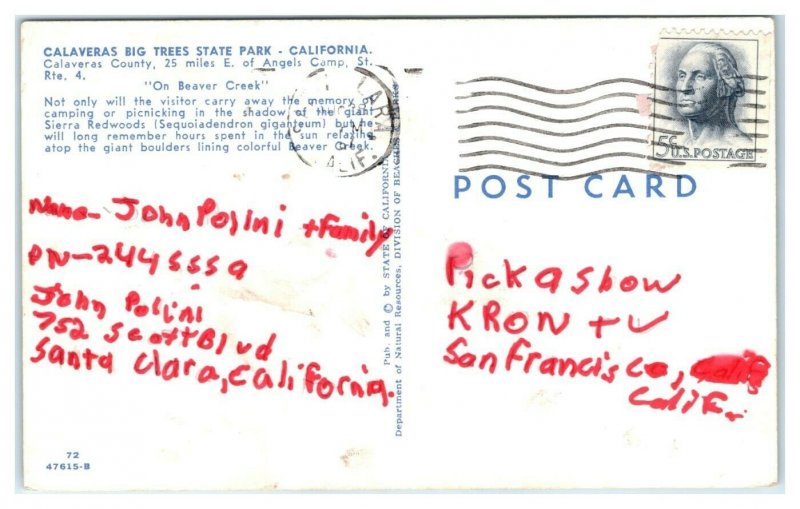 CALAVERAS BIG TREES STATE PARK - CALIFORNIA.
Calaveras County, 25 miles E. of Angels Camp, St.
Rte. 4.
"On Beaver Creek"
Not only will the visitor carry away the memory of
camping or picnicking in the shadow of the giant
Sierra Redwoods (Sequoiadendron giganteum) but he
will long remember hours spent in the sun relaxing
atop the giant boulders lining colorful Beaver Creek.
Name- John Polini + Family
PN-2445559
John Polini
752 Scott Blvd
Santa Clara, California.
72
47615-B
Pub. and © by STATE OF CALIFORNIA
Department of Natural Resources, DIVISION OF BEACHES
CLARA
CALIF.
5¢
U.S. POSTAGE
POST CARD
Pick a show
KRON tv
San Francisco, Calif
Calif.